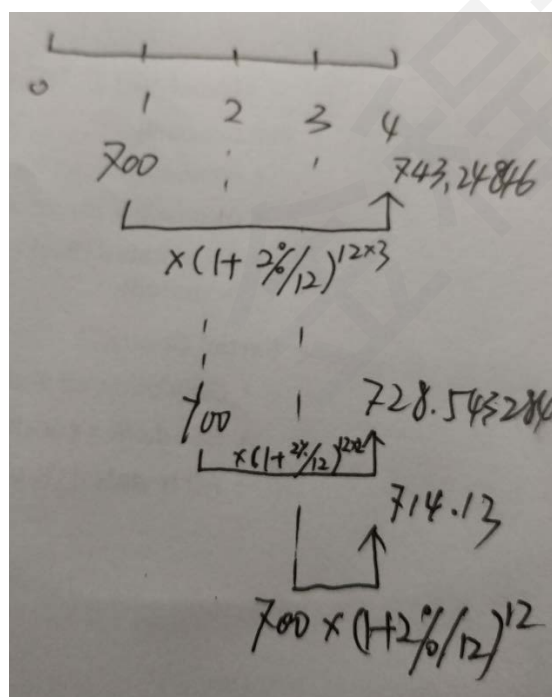 0 1 2 3 4
700 743.24846
×(1+2%/12)^12×3
700 728.543284
×(1+2%/12)^12×2
714.13
700×(1+2%/12)^12